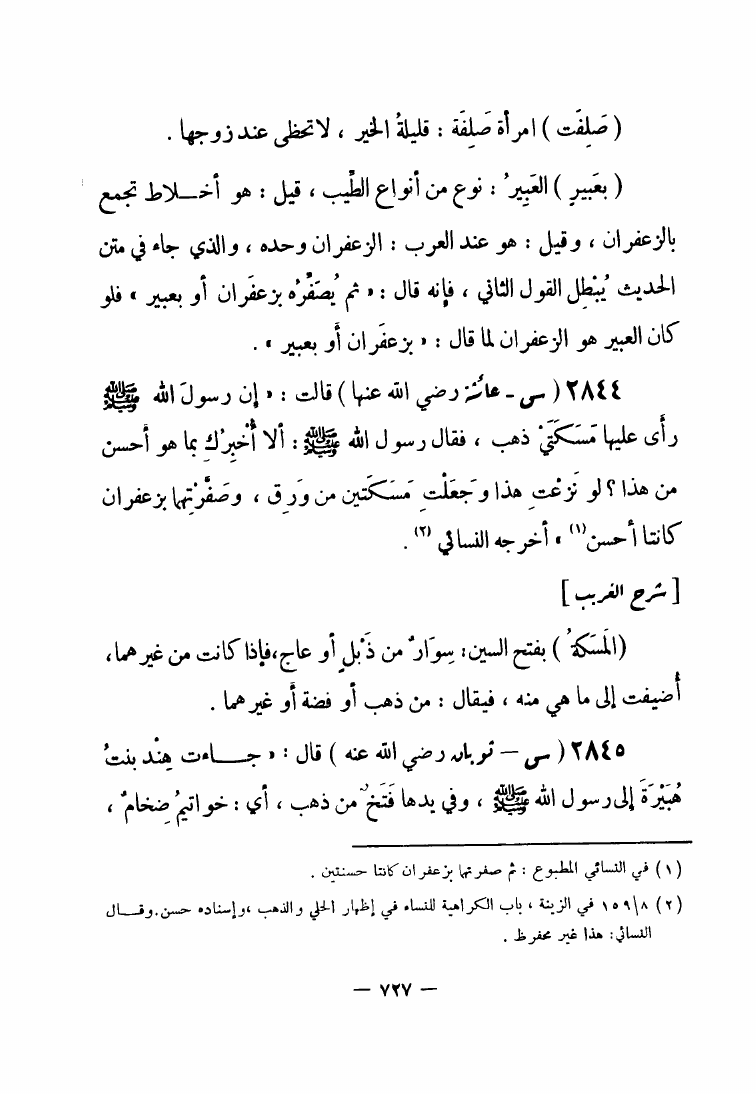 ( صَلِفَت ) امرأة صَلِفَة : قليلةُ الخير ، لا تحظى عند زوجها .
( بعَبيرٍ ) العَبِيرُ : نوع من أنواع الطِّيب ، قيل : هو أخـلاط تجمع
بالزعفران ، وقيل : هو عند العرب : الزعفران وحده ، والذي جاء في متن
الحديث يُبْطِل القول الثاني ، فإنه قال : « ثم يُصَفِّرُه بزعفَران أو بعبير » فلو
كان العبير هو الزعفران لما قال : « بزعفَران أو بعبير » .
٢٨٤٤ ( س - عائشة رضي الله عنها ) قالت : « إن رسولَ الله ﷺ
رأى عليها مَسَكَتَيْ ذهب ، فقال رسول الله ﷺ : ألا أُخْبِرُكِ بما هو أحسن
من هذا ؟ لو نَزعْتِ هذا وجَعَلْتِ مَسَكَتين من وَرِق ، وصَفَّرْتِهما بزعفران
كانتا أحسن (١) » أخرجه النسائي (٢) .
[ شرح الغريب ]
(المَسَكَةُ ) بفتح السين: سِوَارٌ من ذَبْلٍ أو عاج،فإذا كانت من غيرهما،
أُضيفت إلى ما هي منه ، فيقال : من ذهب أو فضة أو غيرهما .
٢٨٤٥ ( س – ثوبان رضي الله عنه ) قال : « جـاءت هِنْد بنتُ
هُبَيْرَةَ إلى رسول الله ﷺ ، وفي يدها فَتَخٌ من ذهب ، أي : خواتيمُ ضِخامٌ ،
(١) في النسائي المطبوع : ثم صفرتهما بزعفران كانتا حسنتين .
(٢) ٨/١٥٩ في الزينة ، باب الكراهية للنساء في إظهار الحلي والذهب ،وإسناده حسن.وقـال
النسائي: هذا غير محفوظ .
— ٧٢٧ —